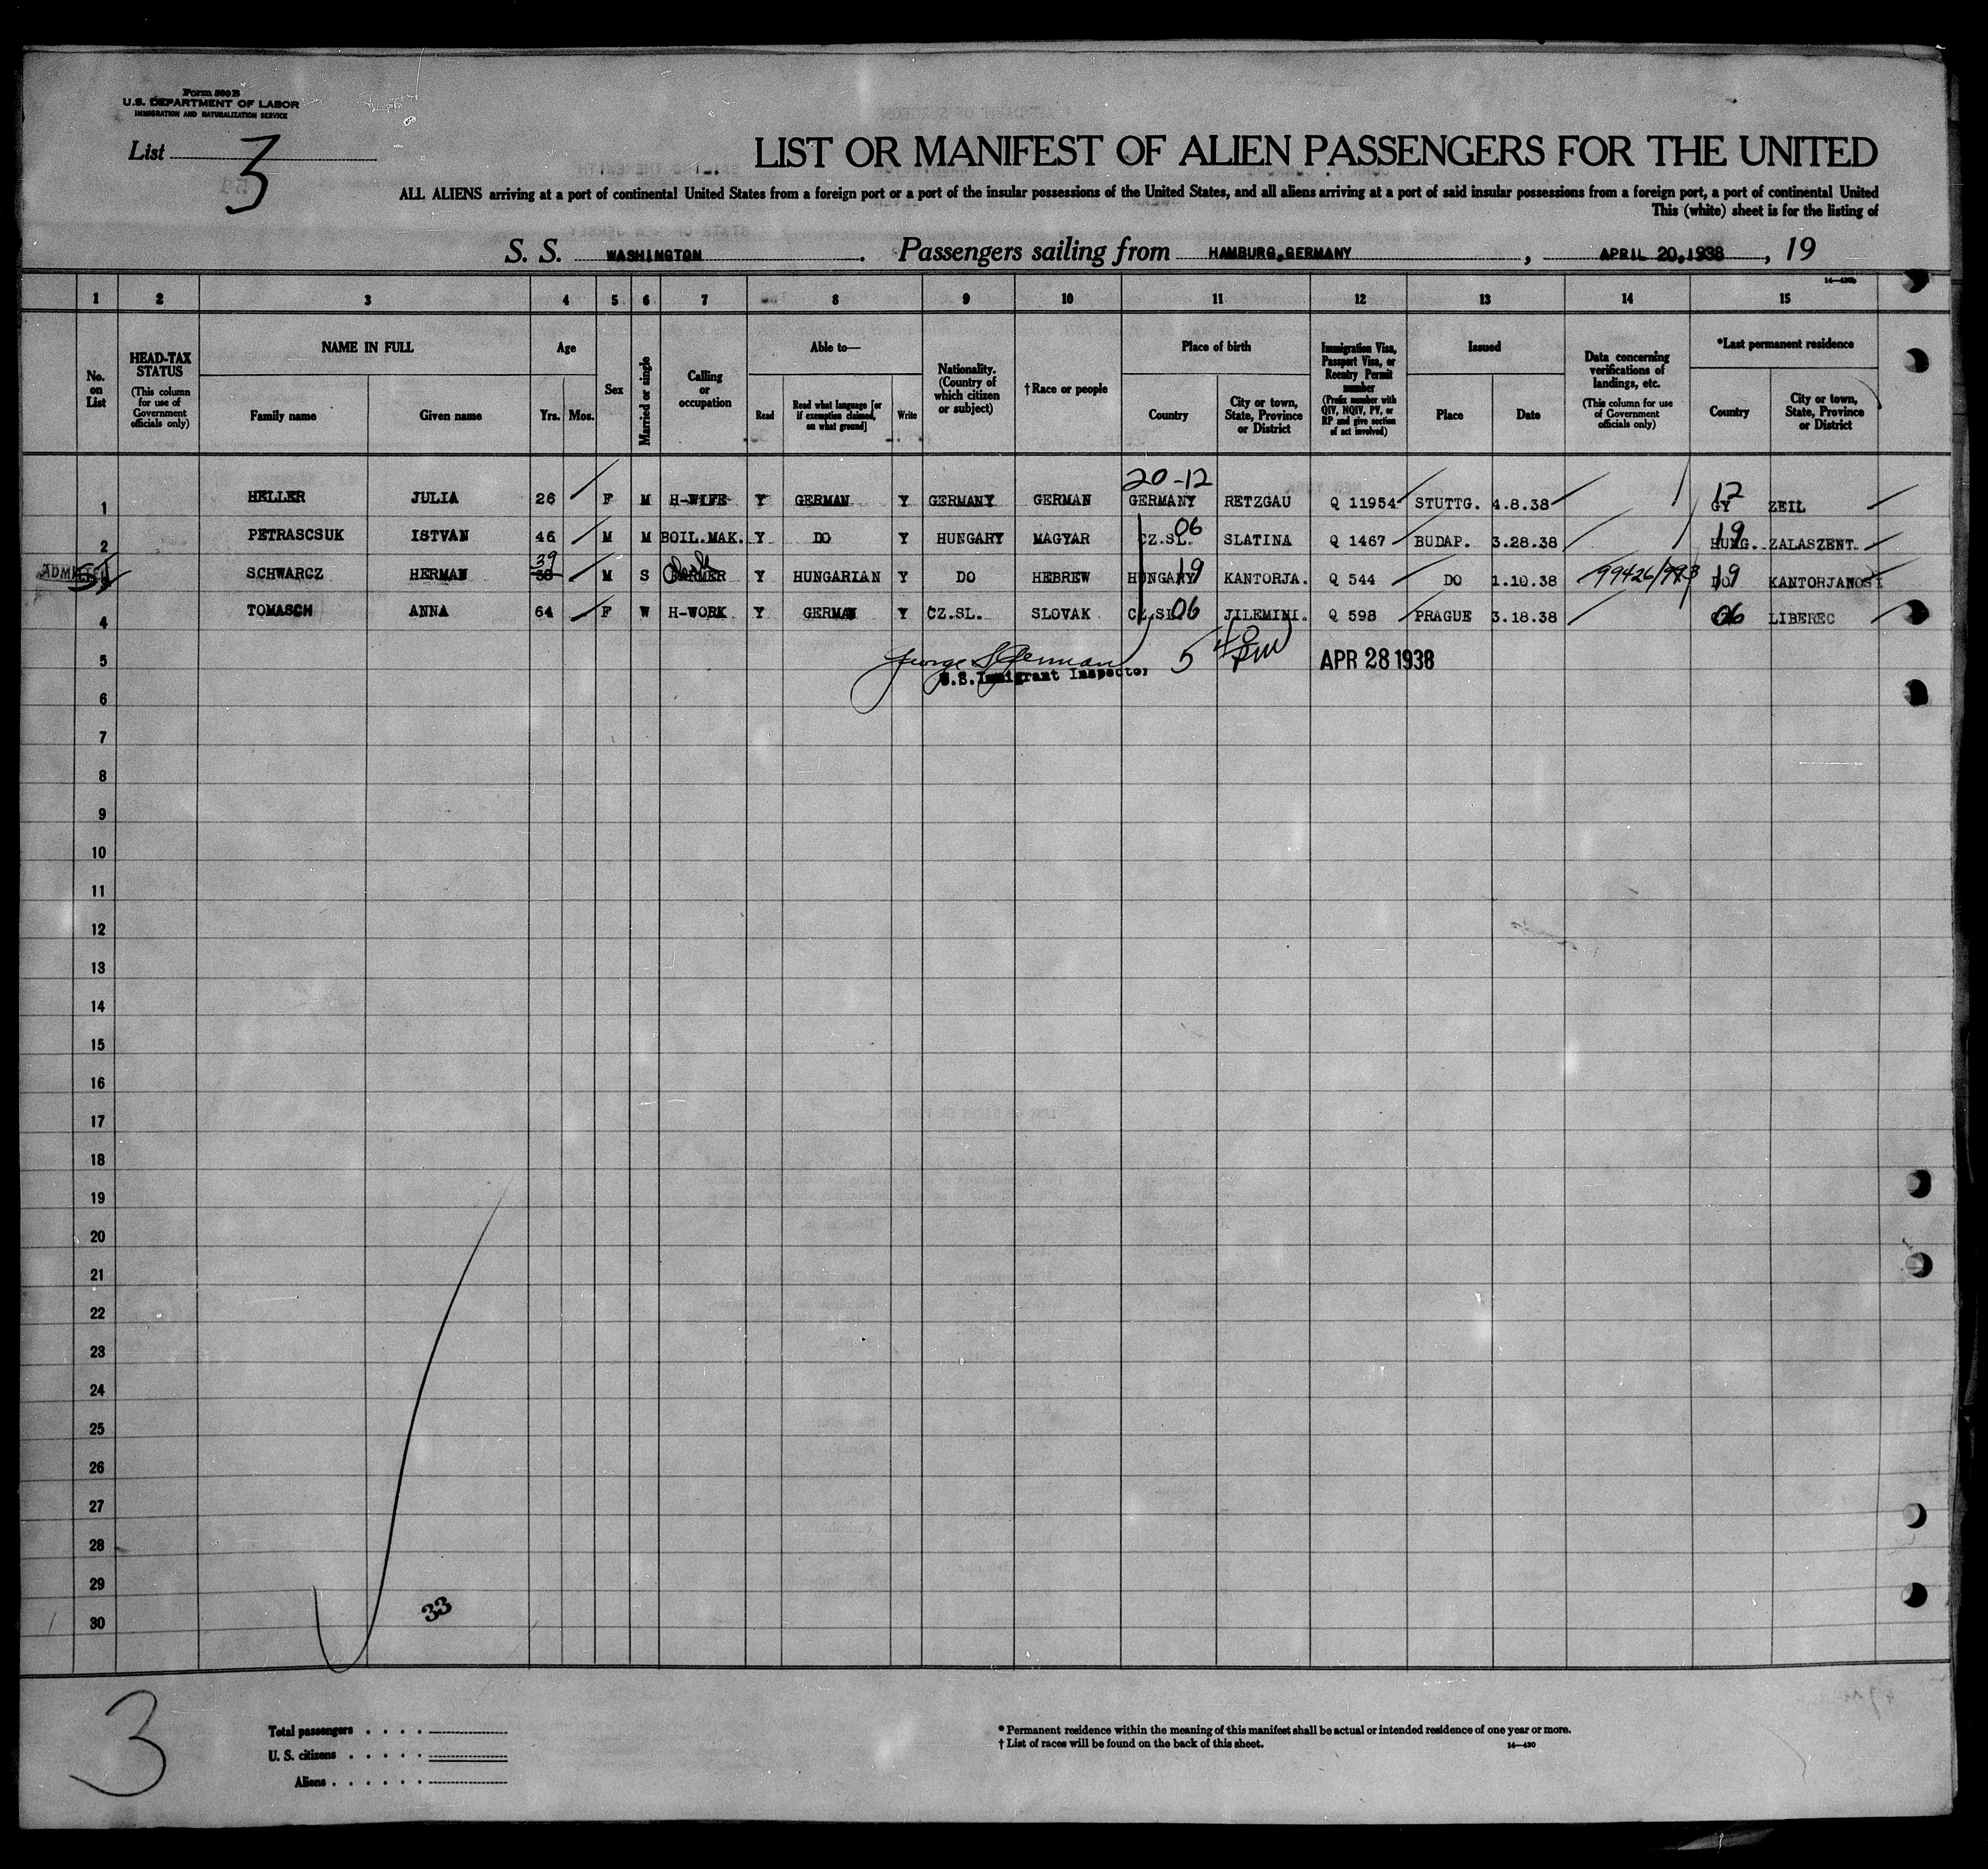 Form 500 B
U.S. DEPARTMENT OF LABOR
IMMIGRATION AND NATURALIZATION SERVICE
List 3
LIST OR MANIFEST OF ALIEN PASSENGERS FOR THE UNITED
ALL ALIENS arriving at a port of continental United States from a foreign port or a port of the insular possessions of the United States, and all aliens arriving at a port of said insular possessions from a foreign port, a port of continental United
This (white) sheet is for the listing of
S. S. WASHINGTON. Passengers sailing from HAMBURG, GERMANY, APRIL 20, 1938, 19
1 2 3 4 5 6 7 8 9 10 11 12 13 14 15
No. on List
HEAD-TAX STATUS (This column for use of Government officials only)
NAME IN FULL Family name Given name
Age Yrs. Mos.
Sex
Married or single
Calling or occupation
Able to— Read Read what language [or if exemption claimed, on what ground] Write
Nationality. (Country of which citizen or subject)
†Race or people
Place of birth Country City or town, State, Province or District
Immigration Visa, Passport Visa, or Reentry Permit number (Prefix number with QIV, NQIV, PV, or RP and give section of act involved)
Issued Place Date
Data concerning verifications of landings, etc. (This column for use of Government officials only)
*Last permanent residence Country City or town, State, Province or District
20-12 12
1 HELLER JULIA 26 F M H-WIFE Y GERMAN Y GERMANY GERMAN GERMANY RETZGAU Q 11954 STUTTG. 4.8.38 GY ZEIL
2 PETRASCSUK ISTVAN 46 M M BOIL.MAK. Y DO Y HUNGARY MAGYAR CZ.SL. 06 SLATINA Q 1467 BUDAP. 3.28.38 HUNG. 19 ZALASZENT.
39
ADMITTED SCHWARCZ HERMAN 38 M S FARMER Y HUNGARIAN Y DO HEBREW HUNGARY 19 KANTORJA. Q 544 DO 1.10.38 99426/993 DO 19 KANTORJANOSI
4 TOMASCH ANNA 64 F W H-WORK Y GERMAN Y CZ.SL. SLOVAK CZ.SL. 06 JILEMINI. Q 598 PRAGUE 3.18.38 06 LIBEREC
5 U.S. Immigrant Inspector 5 40 PM APR 28 1938
6
7
8
9
10
11
12
13
14
15
16
17
18
19
20
21
22
23
24
25
26
27
28
29
33
30
3
Total passengers . . . .
U. S. citizens . . . . .
Aliens . . . . . .
* Permanent residence within the meaning of this manifest shall be actual or intended residence of one year or more.
† List of races will be found on the back of this sheet.
14—430